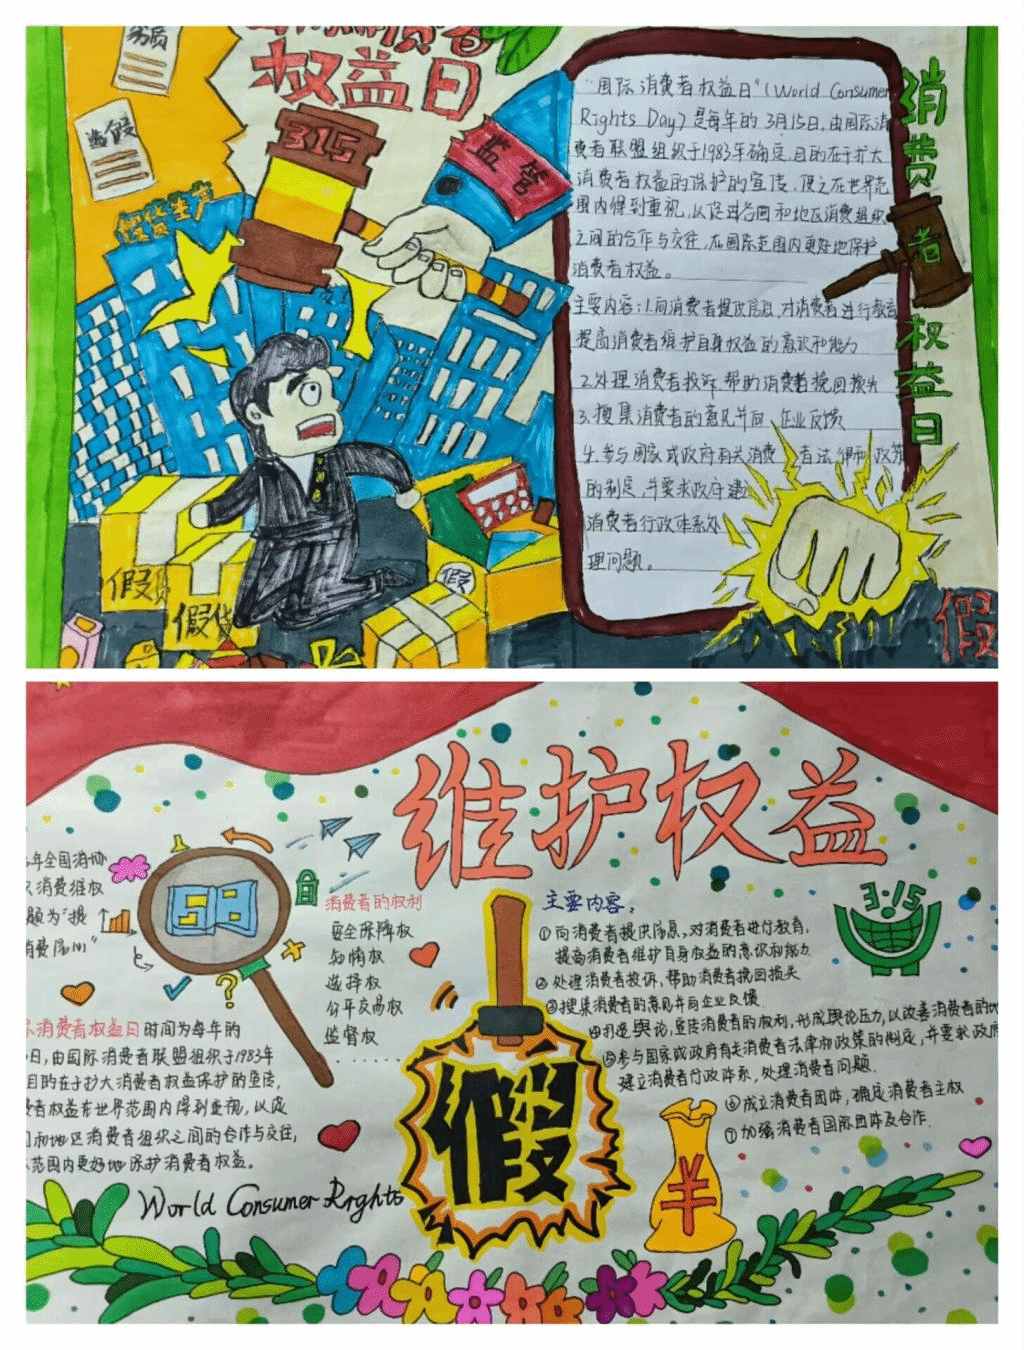 劣质
造假
假货生产
权益日
315
监管
"国际消费者权益日"(World Consumer
Rights Day)是每年的3月15日,由国际消
费者联盟组织于1983年确定,目的在于扩大
消费者权益的保护的宣传,使之在世界范
围内得到重视,以促进各国和地区消费组织
之间的合作与交往,在国际范围内更好地保护
消费者权益。
主要内容:1.向消费者提供信息,对消费者进行教育
提高消费者维护自身权益的意识和能力
2.处理消费者投诉,帮助消费者挽回损失
3.搜集消费者的意见并向 企业反馈
4.参与国家或政府有关消费 者法律和政策
的制定,并要求政府建
消费者行政体系处
理问题。
消费者权益日
假货
假货
假
假
维护权益
年全国消协
消费维权
题为"提
消费
国际消费者权益日时间为每年的
日,由国际消费者联盟组织于1983年
目的在于扩大消费者权益保护的宣传,
费者权益在世界范围内得到重视,以促
和地区消费者组织之间的合作与交往,
范围内更好地保护消费者权益。
World Consumer Rights
消费者的权利
安全保障权
知情权
选择权
公平交易权
监督权
......
假
主要内容:
①向消费者提供信息,对消费者进行教育,
提高消费者维护自身权益的意识和能力
②处理消费者投诉,帮助消费者挽回损失
③搜集消费者的意见并向企业反馈.
④打造舆论,宣传消费者的权利,形成舆论压力,以改善消费者的地
⑤参与国家或政府有关消费者法律和政策的制定,并要求政府
建立消费者行政体系,处理消费者问题.
⑥成立消费者团体,确定消费者主权
⑦加强消费者国际团体及合作.
3·15
¥